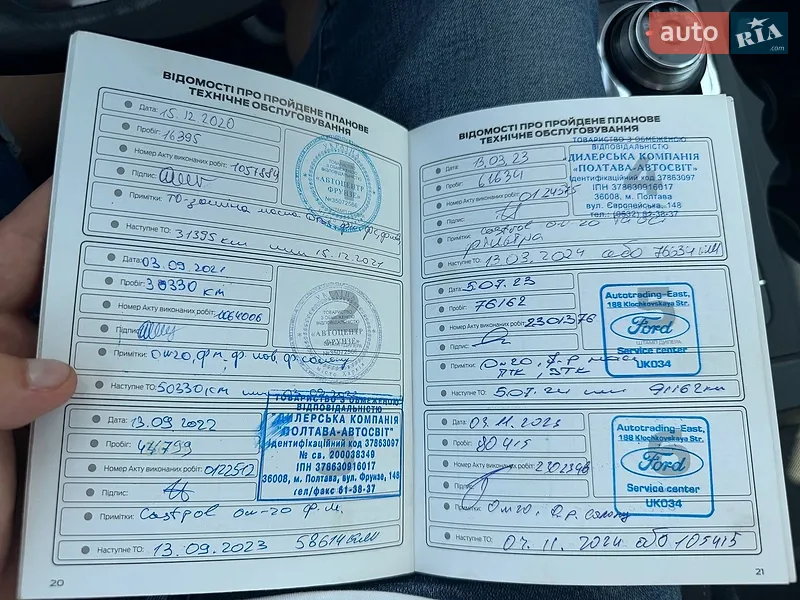 auto RIA .com
ВІДОМОСТІ ПРО ПРОЙДЕНЕ ПЛАНОВЕ
ТЕХНІЧНЕ ОБСЛУГОВУВАННЯ
Дата: 15.12.2020
Пробіг: 16395
Номер Акту виконаних робіт: 1057889
Підпис:
Примітки: ТО-заміна масла
Наступне ТО: 31395 км 15.12.2021
1
«АВТОЦЕНТР
ФРУНЗЕ»
Дата: 03.09.2021
Пробіг: 30330 км
Номер Акту виконаних робіт: 0064006
Підпис:
Примітки:
Наступне ТО: 50330 км
2
«АВТОЦЕНТР
ФРУНЗЕ»
Дата: 13.09.2022
Пробіг: 44799
Номер Акту виконаних робіт: 0122502
Підпис:
Примітки: Castrol ом-20 ф.м.
Наступне ТО: 13.09.2023
ТОВАРИСТВО З ОБМЕЖЕНОЮ
ВІДПОВІДАЛЬНІСТЮ
ДИЛЕРСЬКА КОМПАНІЯ
"ПОЛТАВА-АВТОСВІТ"
Ідентифікаційний код 37863097
№ св. 200038349
ІПН 378630916017
36008, м. Полтава, вул. Фрунзе, 148
тел/факс 61-38-37
20
ВІДОМОСТІ ПРО ПРОЙДЕНЕ ПЛАНОВЕ
ТЕХНІЧНЕ ОБСЛУГОВУВАННЯ
Дата: 13.03.23
Пробіг: 61634
Номер Акту виконаних робіт: 0124515
Підпис:
Примітки: Castrol
Наступне ТО: 13.03.2024 або 76634 км
ТОВАРИСТВО З ОБМЕЖЕНОЮ
ВІДПОВІДАЛЬНІСТЮ
ДИЛЕРСЬКА КОМПАНІЯ
«ПОЛТАВА-АВТОСВІТ»
Ідентифікаційний код 37863097
ІПН 378630916017
36008, м. Полтава,
вул. Європейська, 148
Дата: 5.07.23
Пробіг: 76162
Номер Акту виконаних робіт: 2301376
Підпис:
Примітки:
Наступне ТО: 5.07.24 91162 км
Autotrading-East,
188 Klochkovskaya Str.
Ford
ШТАМП ДИЛЕРА
Service center
UK034
Дата: 03.11.2023
Пробіг: 80415
Номер Акту виконаних робіт: 2302346
Підпис:
Примітки:
Наступне ТО: 02.11.2024 або 105415
Autotrading-East,
188 Klochkovskaya Str.
Ford
Service center
UK034
21